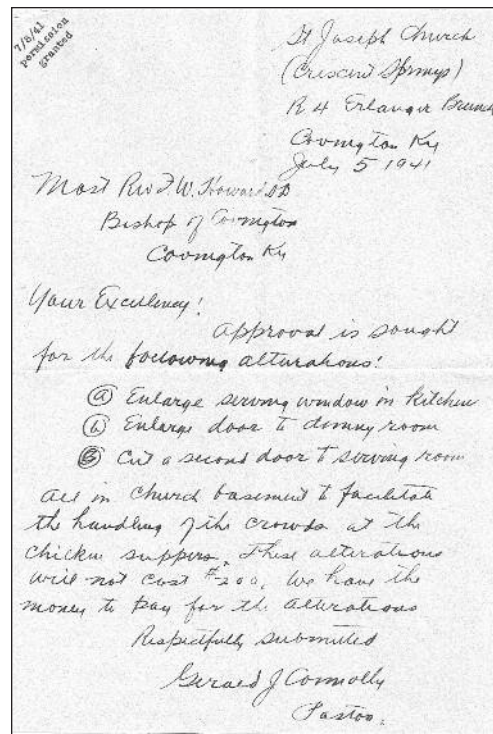 7/8/41
permission
granted
St Joseph Church
(Crescent Springs)
R 4 Erlanger Branch
Covington Ky
July 5 1941
Most Rev F. W. Howard DD
Bishop of Covington
Covington Ky
Your Excellency!
Approval is sought
for the following alterations!
(a) Enlarge serving window in kitchen
(b) Enlarge door to dining room
Cut a second door to serving room
all in church basement to facilitate
the handling of the crowds at the
chicken suppers. These alterations
will not cost $200. We have the
money to pay for the alterations
Respectfully submitted
Gerald J Connolly
Pastor.